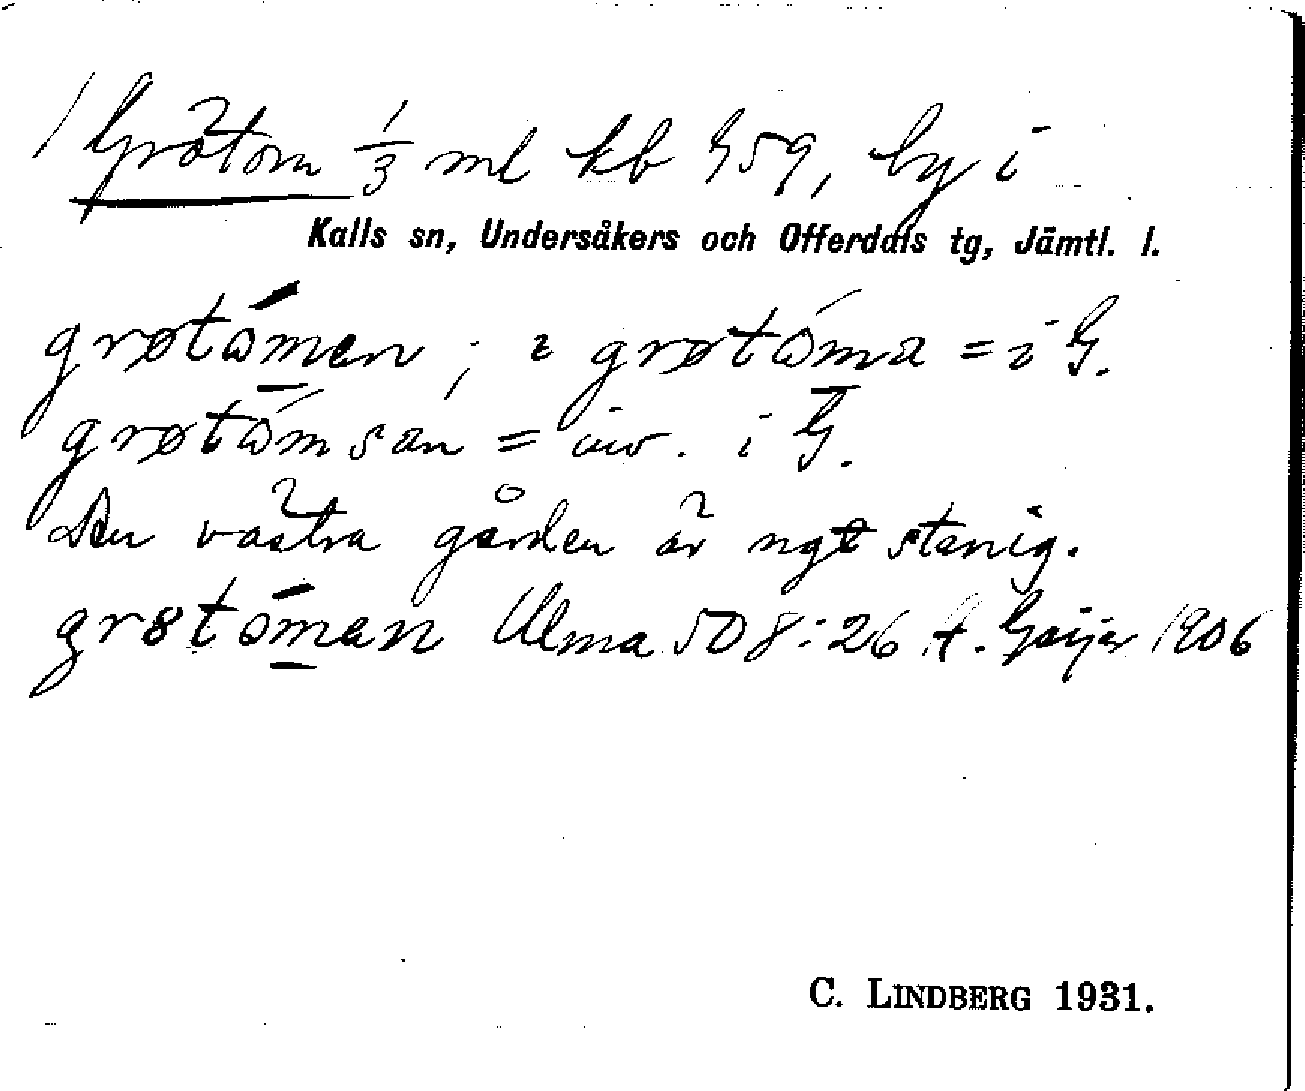 1 Grötom 1/3 ml kb G59, by i
Kalls sn, Undersåkers och Offerdals tg, Jämtl. l.
grøtómen ; i grøtóma = i G.
grøtómsan = inv. i G.
Den västra gården är ngt stenig.
gr8tóman Ulma 508:26 H. Geijer 1906
C. LINDBERG 1931.